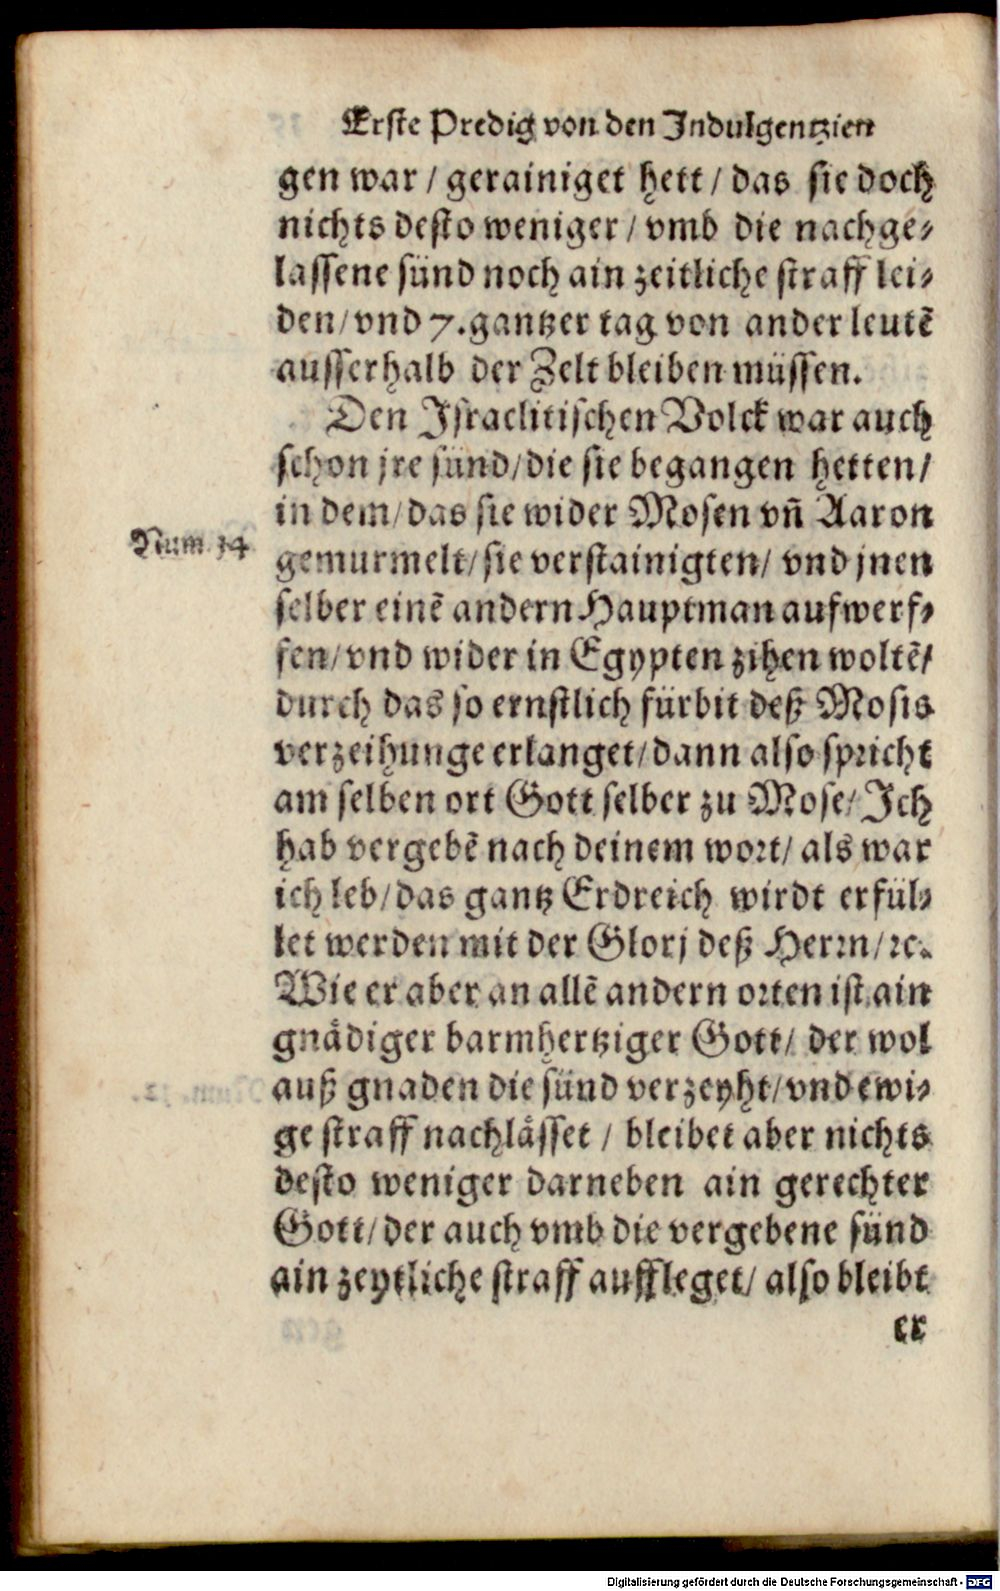 Erste Predig von den Indulgentzien
gen war / gerainiget hett / das sie doch
nichts desto weniger / vmb die nachge⸗
lassene sünd noch ain zeitliche straff lei⸗
den / vnd 7. gantzer tag von ander leutẽ
ausserhalb der Zelt bleiben müssen.
Den Israelitischen Volck war auch
schon jre sünd / die sie begangen hetten /
in dem / das sie wider Mosen vñ Aaron
Num. 14
gemurmelt / sie verstainigten / vnd jnen
selber einẽ andern Hauptman aufwerf⸗
fen / vnd wider in Egypten zihen woltẽ /
durch das so ernstlich fürbit deß Mosis
verzeihunge erlanget / dann also spricht
am selben ort Gott selber zu Mose / Ich
hab vergebẽ nach deinem wort / als war
ich leb / das gantz Erdreich wirdt erfül⸗
let werden mit der Glorj deß Herrn / ꝛc.
Wie er aber an allẽ andern orten ist ain
gnaͤdiger barmhertziger Gott / der wol
auß gnaden die sünd verzeyht / vnd ewi⸗
ge straff nachlaͤsset / bleibet aber nichts
desto weniger darneben ain gerechter
Gott / der auch vmb die vergebene sünd
ain zeytliche straff auffleget / also bleibt
er
Digitalisierung gefördert durch die Deutsche Forschungsgemeinschaft - DFG